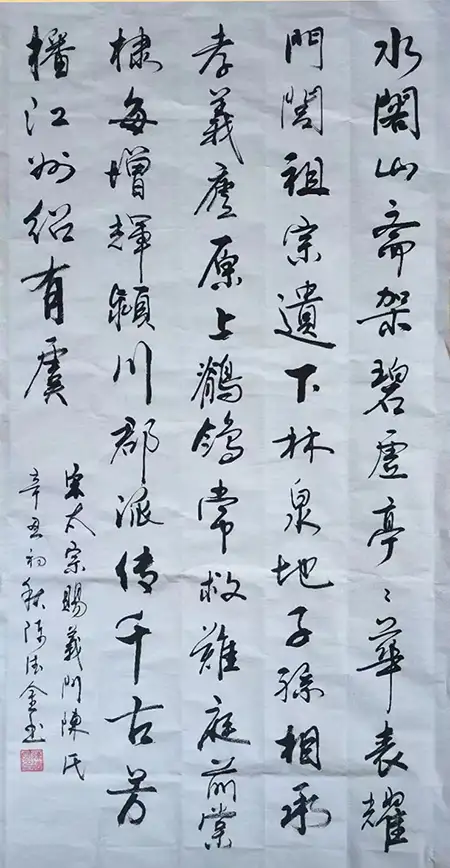 水閣山齋架碧虛亭〻華表耀
門閭祖宗遺下林泉地子孫相承
孝義廬原上鶺鴒常救難庭前棠
棣每增輝潁川郡派传千古芳
播江州绍有虞
宋太宗賜義門陳氏
辛丑初秋陈法金书